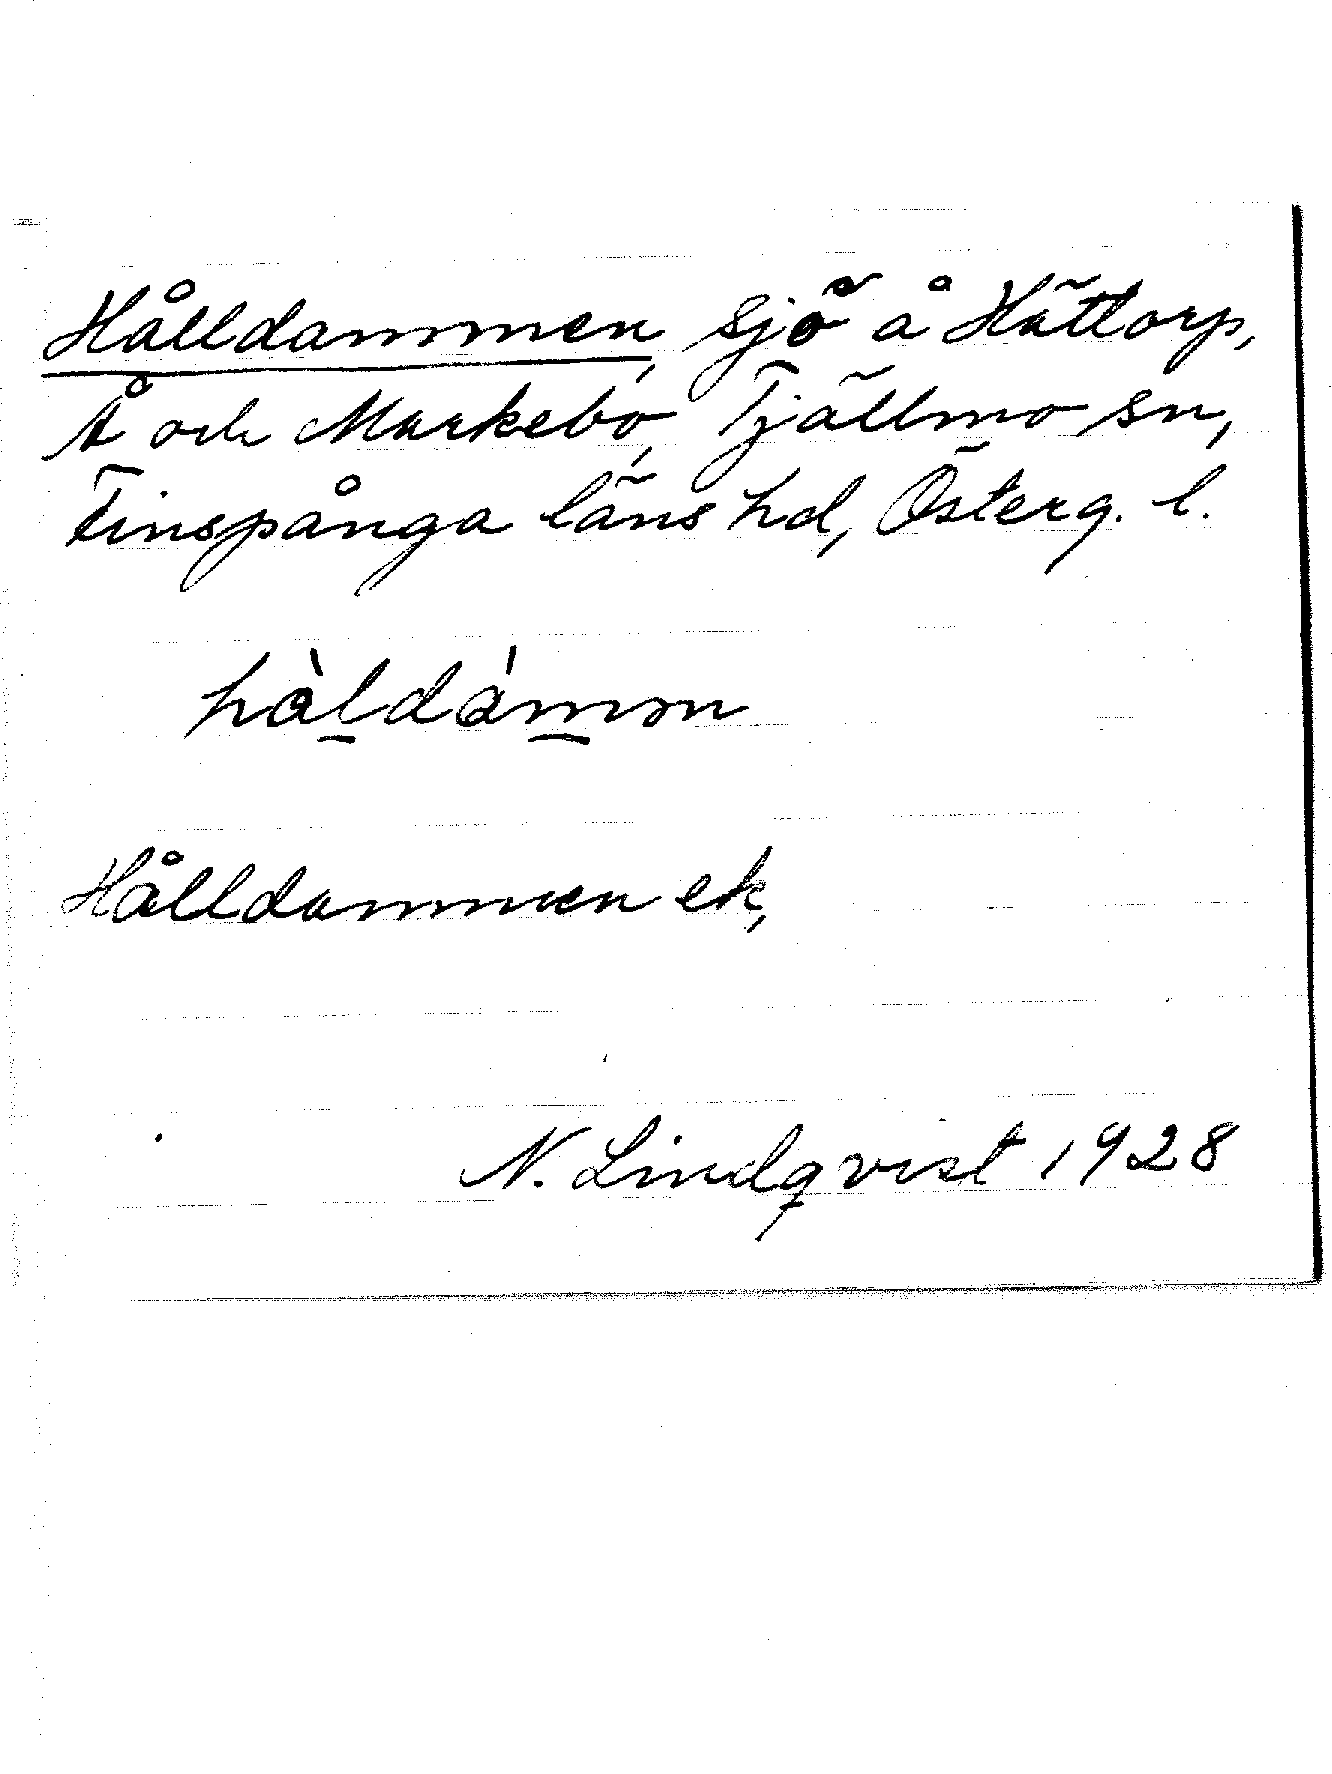 Hålldammen, sjö å Hättorp,
Å och Markebo, Tjällmo sn,
Finspånga läns hd, Österg. l.
hàldámən
Hålldammen ek,
N. Lindqvist 1928